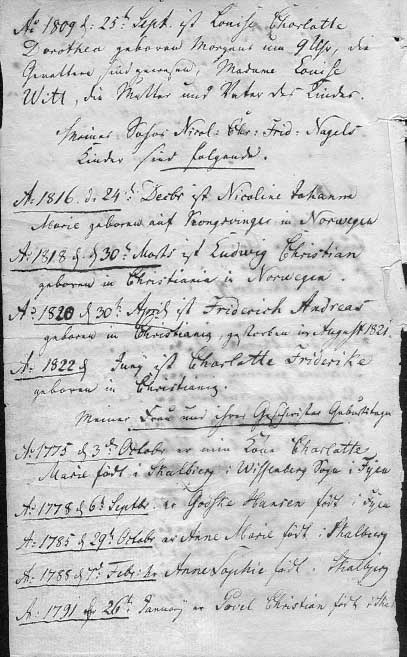 Aº 1809 d: 25t Sept. ist Louise Charlotte
Dorothea geboren Morgens um 9 Uhr, die
Gevattern sind gewesen, Madame Louise
Witt, die Mutter und Vater des Kindes.
Meines Sohns Nicol: Chr: Frid: Nagels
Kinder sind folgende.
Aº 1816 d. 24t Decbr ist Nicoline Johanne
Marie geboren auf Kongsvinger in Norwegen
Aº 1818 d 30t ist Ludwig Christian
geboren in Christiania in Norwegen.
Aº 1820 d 30t April ist Friderich Andreas
geboren in Christiania, gestorben im August 1821.
Aº 1822 d Juny ist Charlotte Friderike
geboren in Christiania.
Meiner Frau und ihrer Geschwister Geburtstagen
Aº 1775 d 3d Octobr er min Kone Charlotte
Marie født i Skalbierg i Wissenberg Sogn i Fyen
Aº 1778 d 6t Septbr: er Hansen født i Fyen
Aº 1785 d 29t Octobr er Anne Marie født i Skalbierg
Aº 1788 d 7t Febr: er Anne Sophie født i Skalbierg
Aº 1791 d 26t Januarij er Povel Christian født i